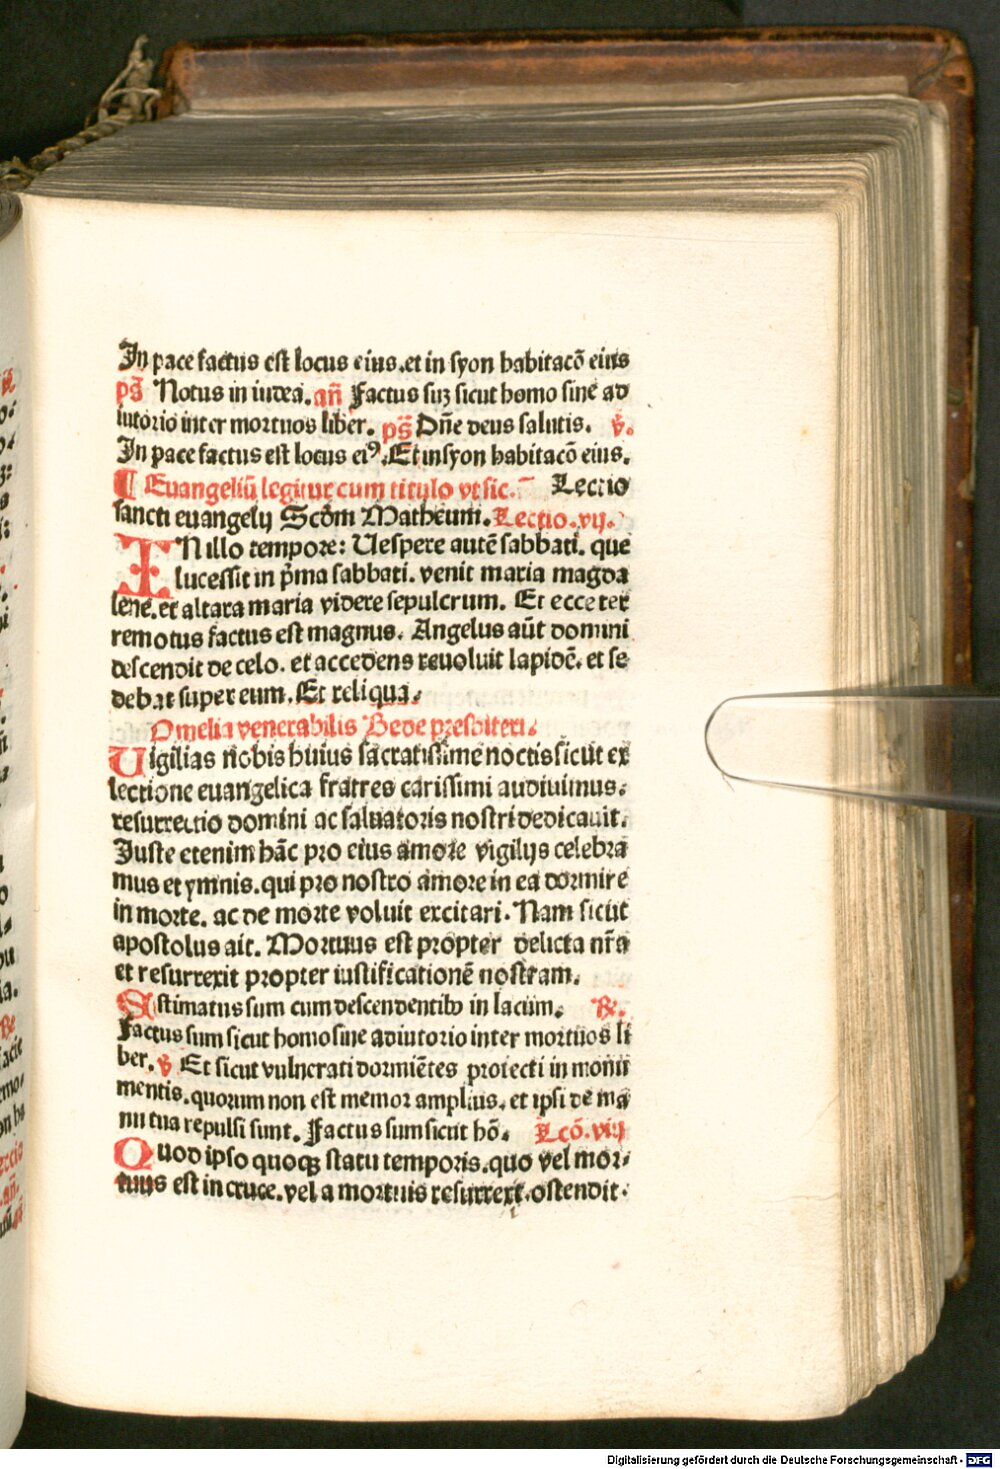 In pace factus est locus eius.et in syon habitacō eius
ps̄ Notus in iudea.an̄ Factus suꝫ sicut homo sine ad
iutorio inter mortuos liber. ps̄ Dn̄e deus salutis. v̄.
In pace factus est locus eiꝰ.Et in syon habitacō eius.
¶ Euangeliū legitur cum titulo vt sic. Lectio
sancti euangelij Scd̄m Matheum.Lectio.vij.
IN illo tempore: Uespere autē sabbati. que
lucessit in p̄ma sabbati. venit maria magda
lene.et altara maria videre sepulcrum. Et ecce ter
remotus factus est magnus. Angelus aūt domini
descendit de celo. et accedens reuoluit lapidē. et se
debat super eum.Et reliqua.
Omelia venerabilis Bede presbiteri.
Uigilias nobis huius sacratissime noctis sicut ex
lectione euangelica fratres carissimi audiuimus.
resurrectio domini ac saluatoris nostri dedicauit.
Iuste etenim hāc pro eius amore vigilijs celebra
mus et ymnis.qui pro nostro amore in ea dormire
in morte. ac de morte voluit excitari. Nam sicut
apostolus ait. Mortuus est propter delicta nr̄a
et resurrexit propter iustificationē nostram.
Estimatus sum cum descendentibꝰ in lacum. ꝶ.
Factus sum sicut homo sine adiutorio inter mortuos li
ber. v̄ Et sicut vulnerati dormiētes proiecti in monu
mentis.quorum non est memor amplius. et ipsi de ma
nu tua repulsi sunt. Factus sum sicut hō. Lcō.viij
Quod ipso quoqꝫ statu temporis.quo vel mor
tuus est in cruce.vel a mortuis resurrexit.ostendit.
Digitalisierung gefördert durch die Deutsche Forschungsgemeinschaft - DFG